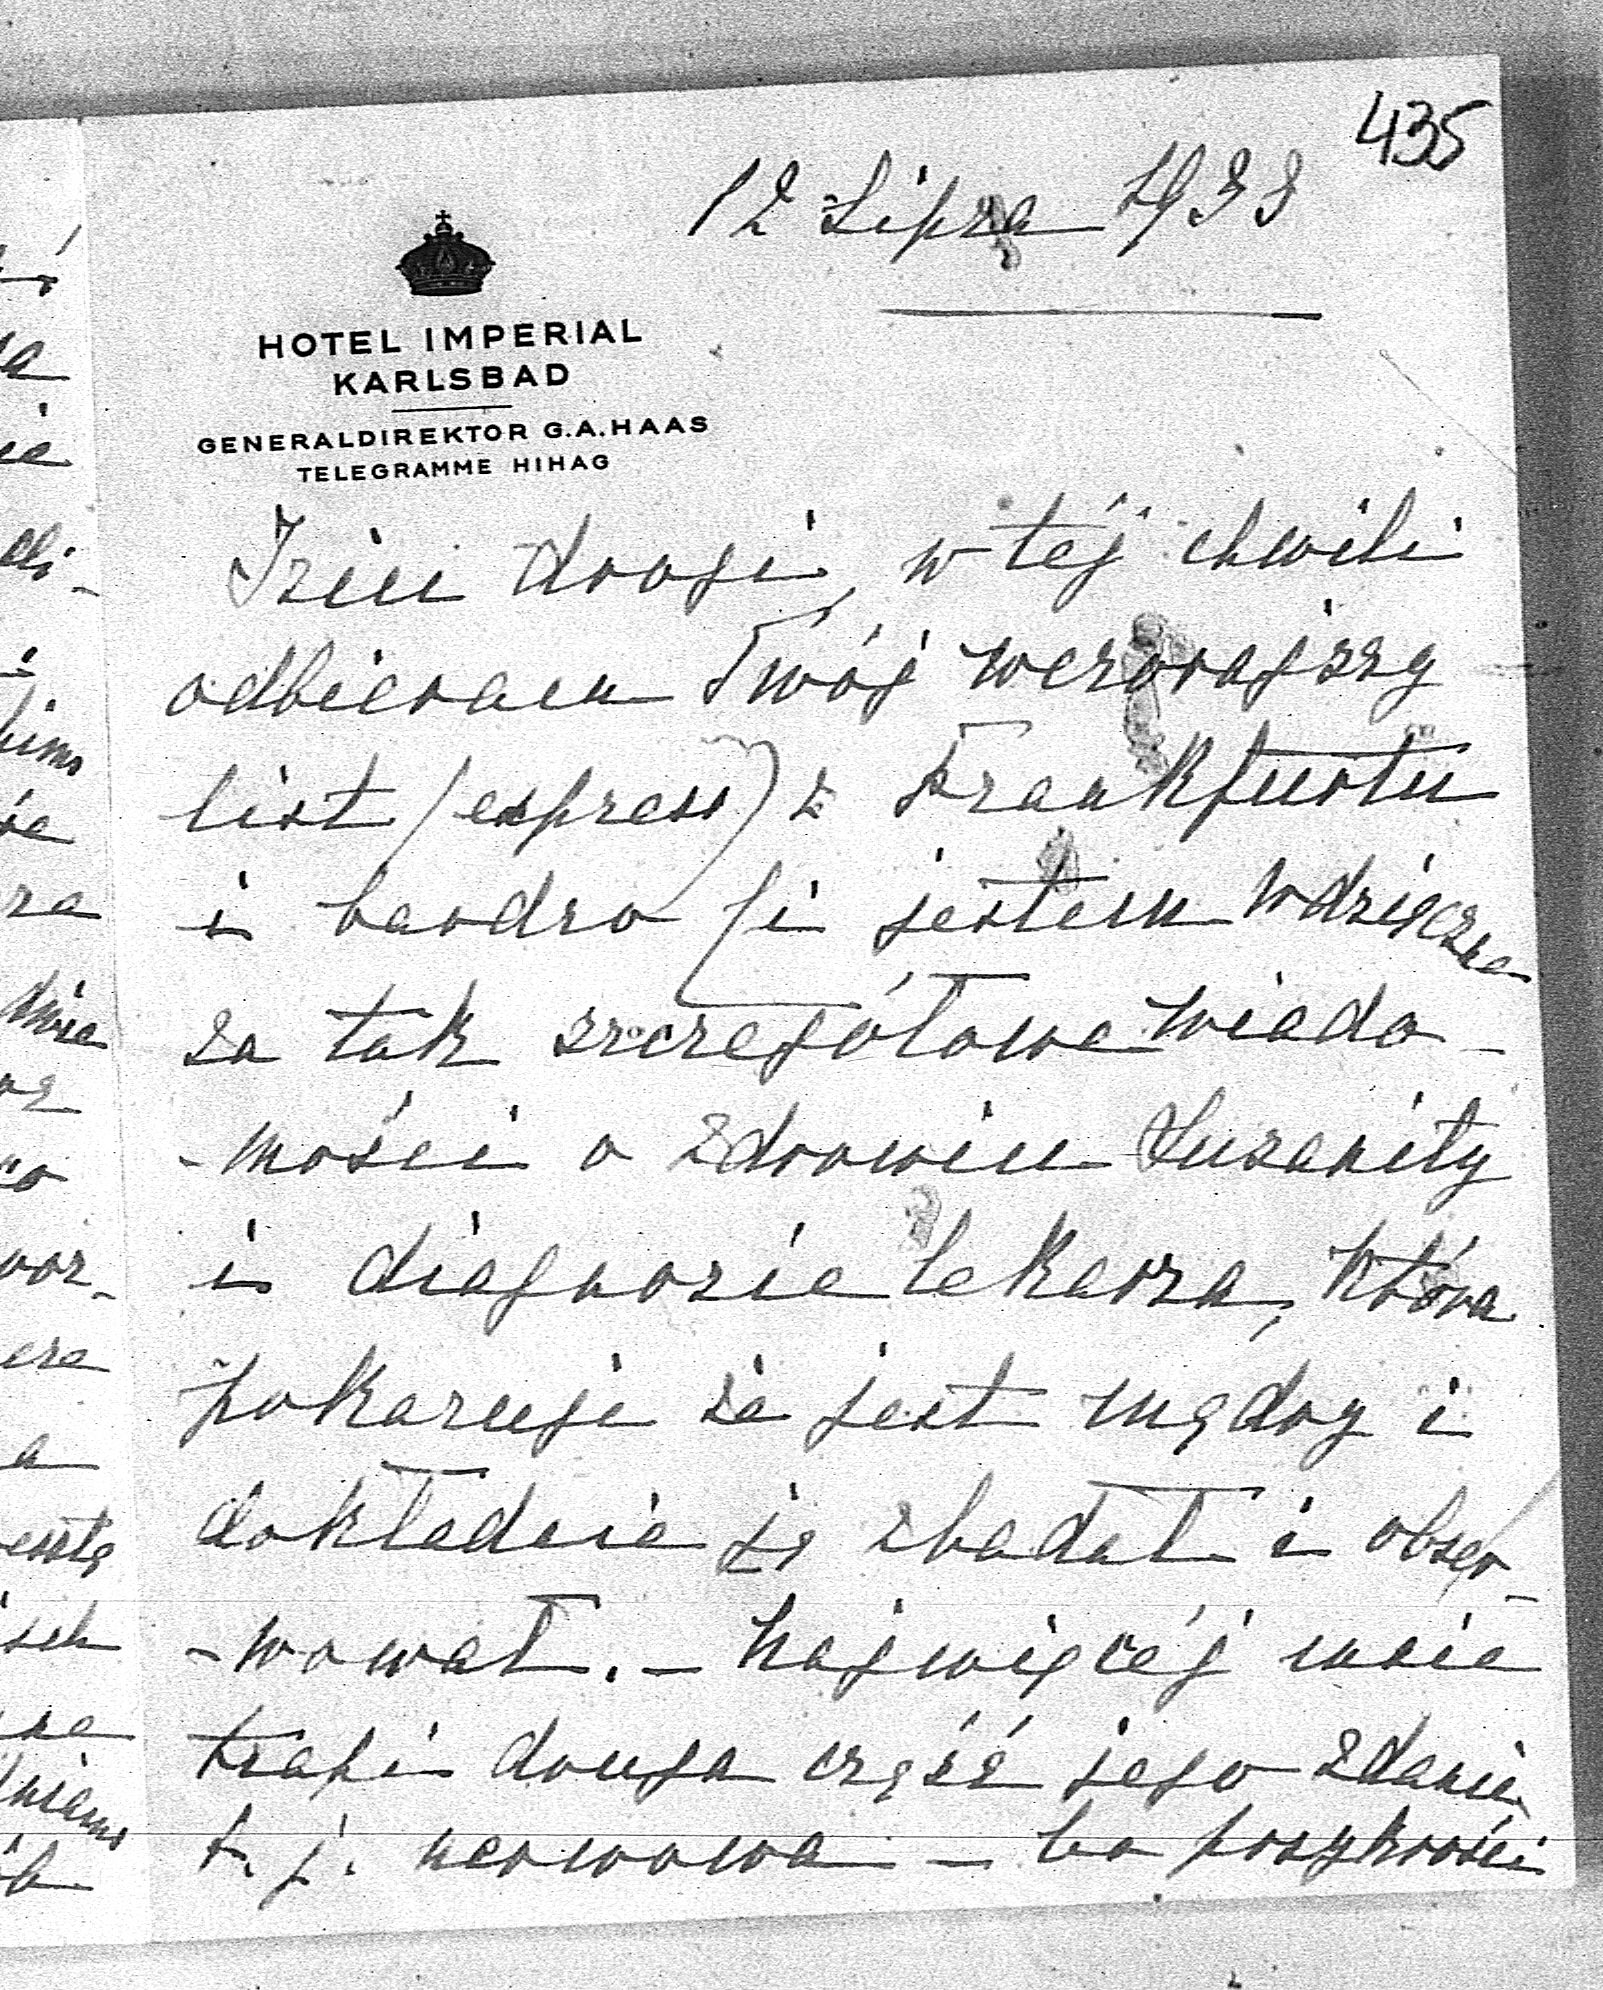 435
12 Lipca 1933
HOTEL IMPERIAL
KARLSBAD
GENERALDIREKTOR G.A.HAAS
TELEGRAMME HIHAG
Iziu drogi, w téj chwili
odbieram Twój wczorajszy
list (express) z Frankfurtu
i bardzo Ci jestem wdzięczna
za tak szczegółowe wiado-
-mości o zdrowiu Suzanity
i diagnozie lekarza, która
pokazuje że jest mądry i
dokładnie ją zbadał i obser-
-wował. – Najwięcéj mnie
trapi druga część jego zdania
t. j. nerwowa – bo przykrości